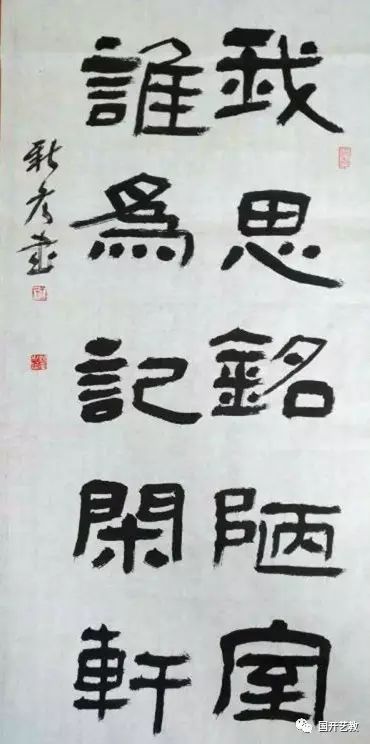 我思銘陋室
誰為記閑軒
新孝書
国开艺教